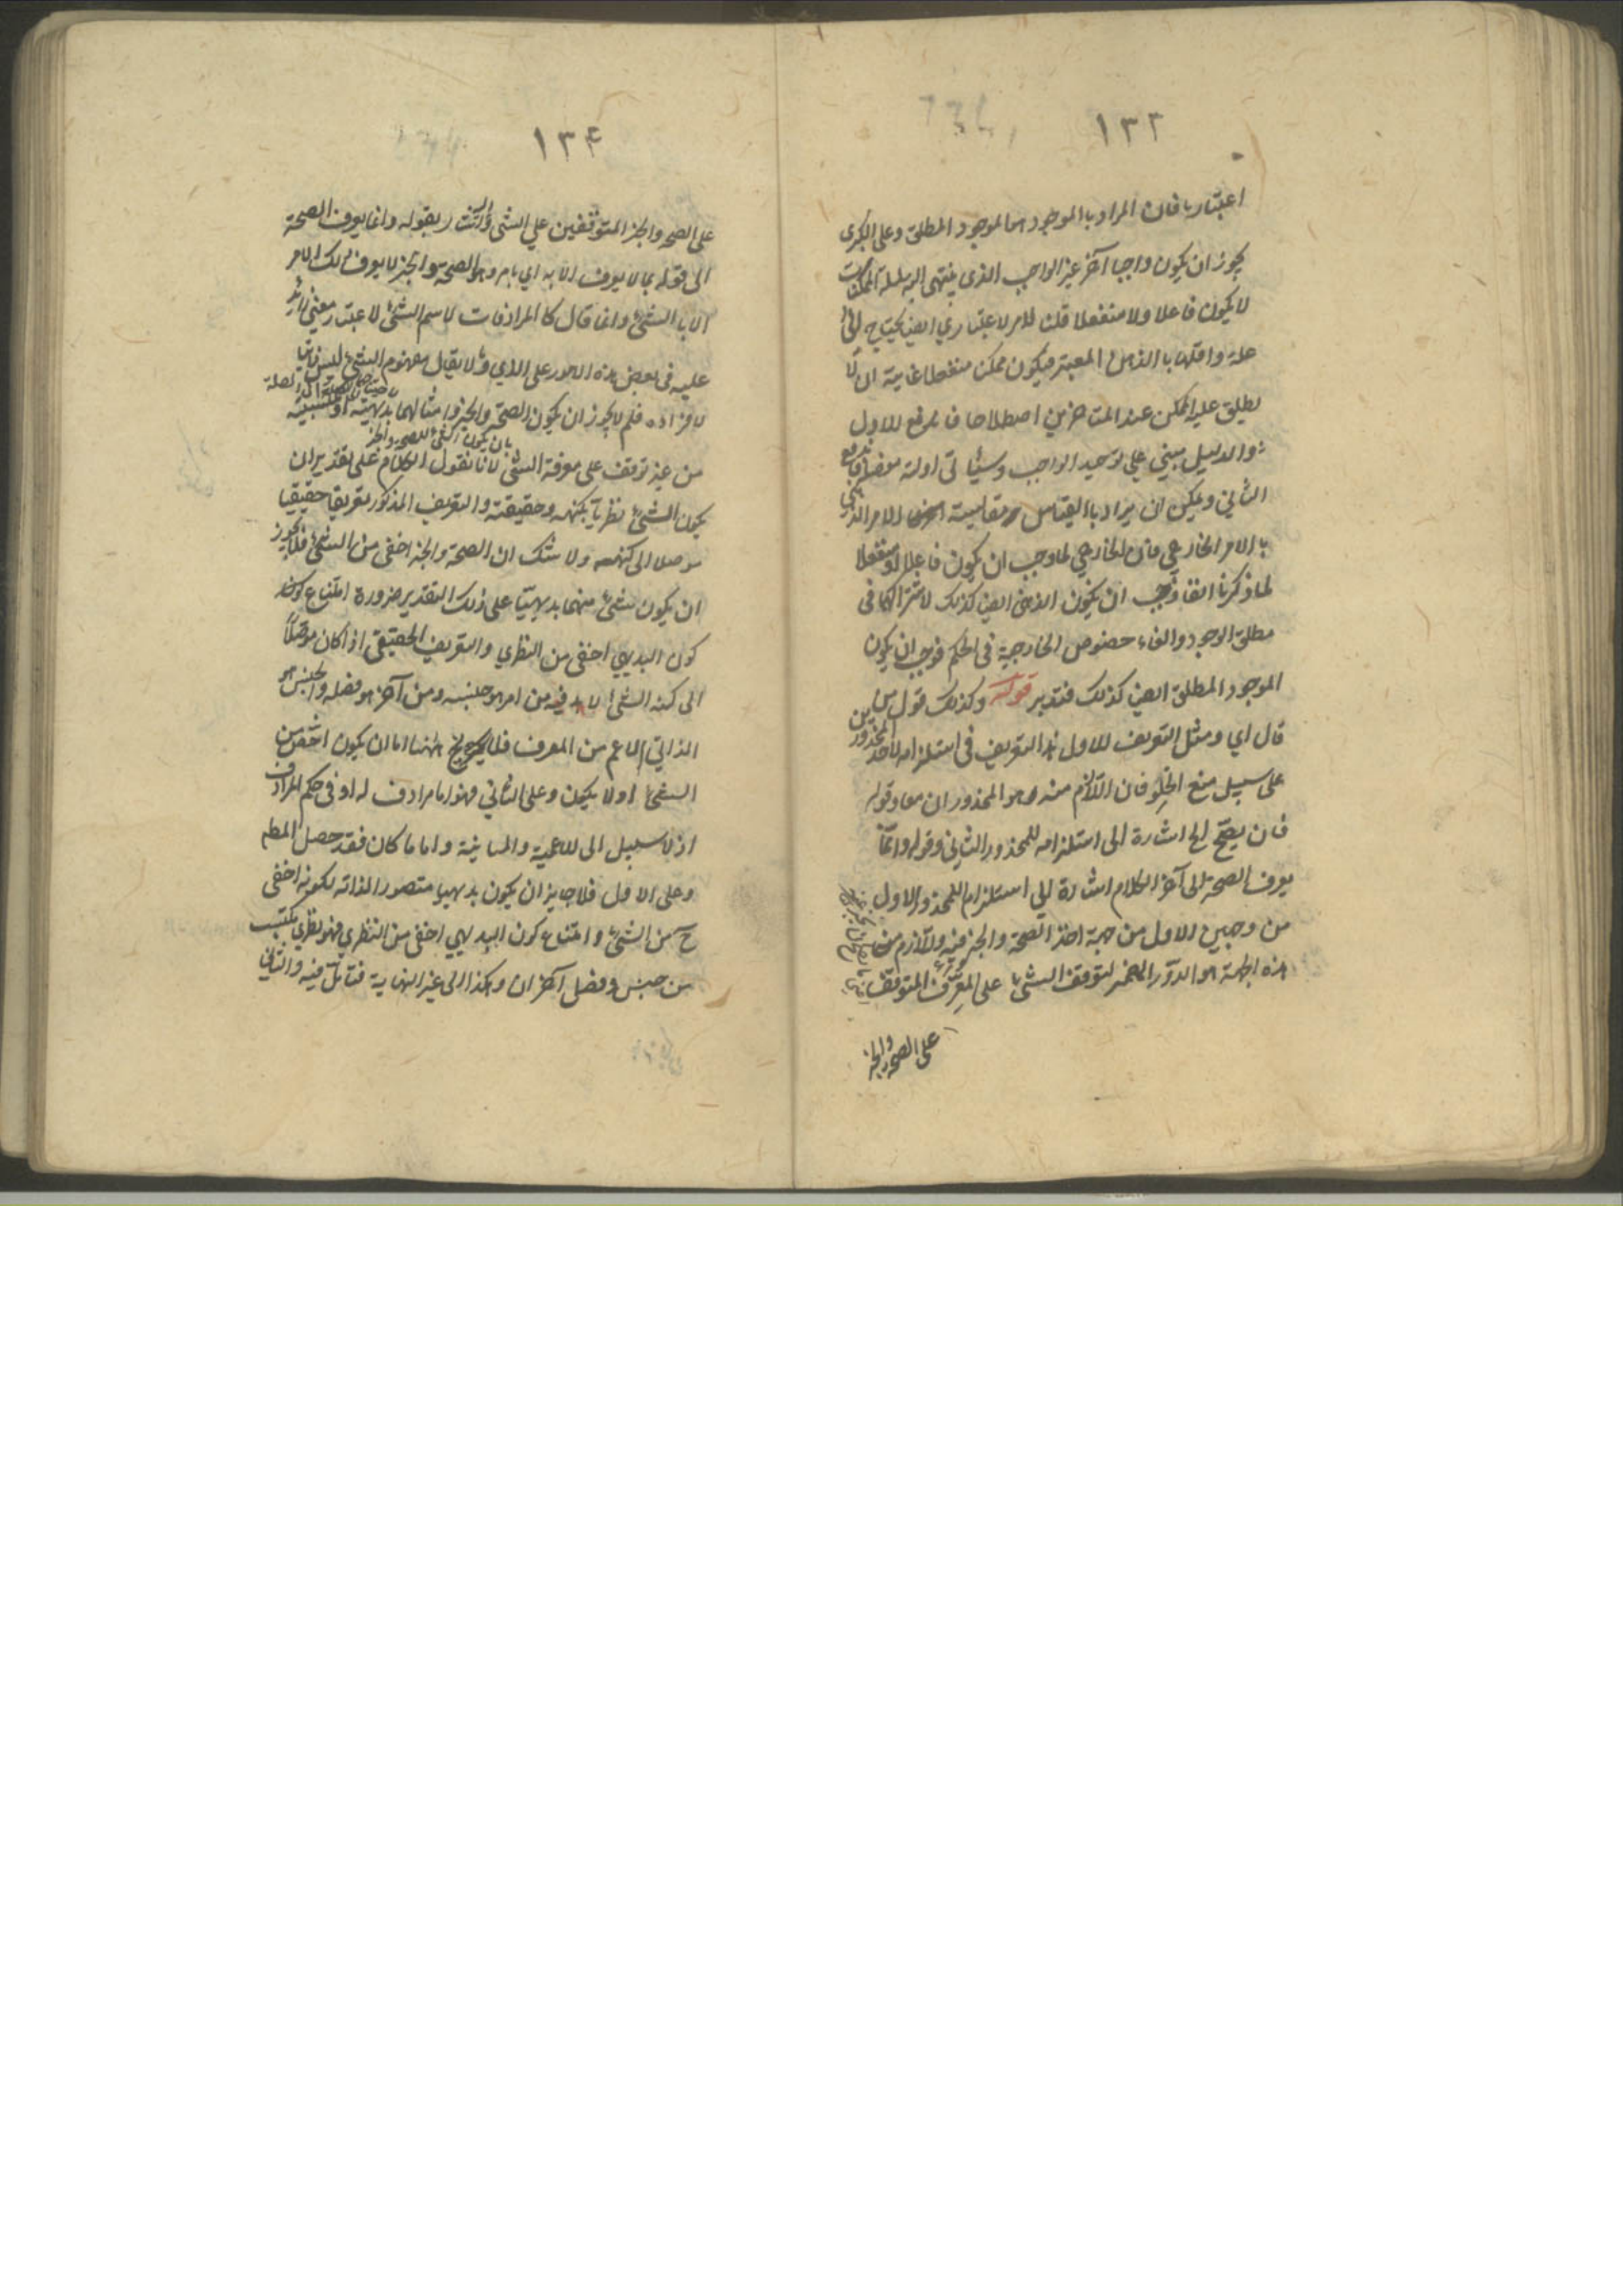 ١٣٢
اعتباريا فان المراد بالموجود هو الموجود المطلق وعلى الكبرى
يجوز ان يكون واجبا آخر غير الواجب الذى ينتهى اليه سلسلة الممكنات
لا يكون فاعلا ولا منفعلا قلنا الامر الاعتباري ايضا يحتاج الى
علة واقلها الذهن المعتبر فيكون ممكن منفعلا غاية ان لا
يطلق عليه الممكن عند المتاخرين اصطلاحا فاندفع الاول
والدليل مبني علي توحيد الواجب وسيأتى ادلة فاندفع
الثاني ويمكن ان يراد بالقياس مقايسة الامر الذهني
بالامر الخارجي فان الخارجي لما وجب ان يكون فاعلا او منفعلا
لما ذكرنا انفا وجب ان يكون الذهنى ايضا كذلك لاشتراكهما فى
مطلق الوجود والغاء خصوص الخارجية فى الحكم فوجب ان يكون
الموجود المطلق ايضا كذلك فتدبر قوله وكذلك قول من
قال اي ومثل التعريف الاول هذا التعريف فى استلزامه لاحد المحذورين
على سبيل منع الخلو فان اللازم منه هو المحذوران معا وقوله
فان يصح الخ اشارة الى استلزامه للمحذور الثاني وقوله وانما
يعرف الصحة الى آخر الكلام اشارة الي استلزام المحذور الاول
من وجهين الاول من جهة اخذ الصحة والخبر فيه واللازم من
هذه الجهة هو الدور المضمر لتوقف الشئ على المعرف المتوقف
على الصحة والخبر
١٣٤
على الصحة والخبر المتوقفين علي الشئ واليه اشار بقوله وانما يعرف الصحة
الى قوله بما لا يعرف الا به اي بامر وهو الصحة والخبر لا يعرف ذلك الامر
الا بالشئ وانما قال كالمرادفات لاسم الشئ لاعتبار معنى زائد
عليه فى بعض هذه الامور على الشئ لا يقال مفهوم الشئ ليس ذاتيا
لافراده فلم لا يجوز ان يكون الصحة والخبر وامثالهما بديهية او كسبية
من غير توقف على معرفة الشئ لانا نقول الكلام على تقدير ان
يكون الشئ نظريا بكنهه وحقيقته والتعريف المذكور تعريفا حقيقيا
موصلا الى كنهه ولا شك ان الصحة والخبر اخفى من الشئ فلا يجوز
ان يكون شئ منهما بديهيا على ذلك التقدير ضرورة امتناع
كون البديهي اخفى من النظري والتعريف الحقيقى اذا كان موصلا
الى كنه الشئ لا بد فيه من امر هو جنسه ومن آخر هو فصله والجنس هو
الذاتي الاعم من المعرف فلا يخ اما ان يكون اخفى من
الشئ او لا يكون وعلى الثاني فهو اما مرادف له او فى حكم المرادف
اذ لا سبيل الى الاعمية والمباينة واياما كان فقد حصل المطلوب
وعلى الاول فلا جايز ان يكون بديهيا متصورا لذاته لكونه اخفى
ح من الشئ وامتناع كون البديهي اخفى من النظري فهو نظري مكتسب
من جنس وفصل آخران وهكذا الى غير النهاية فتأمل فيه والثاني